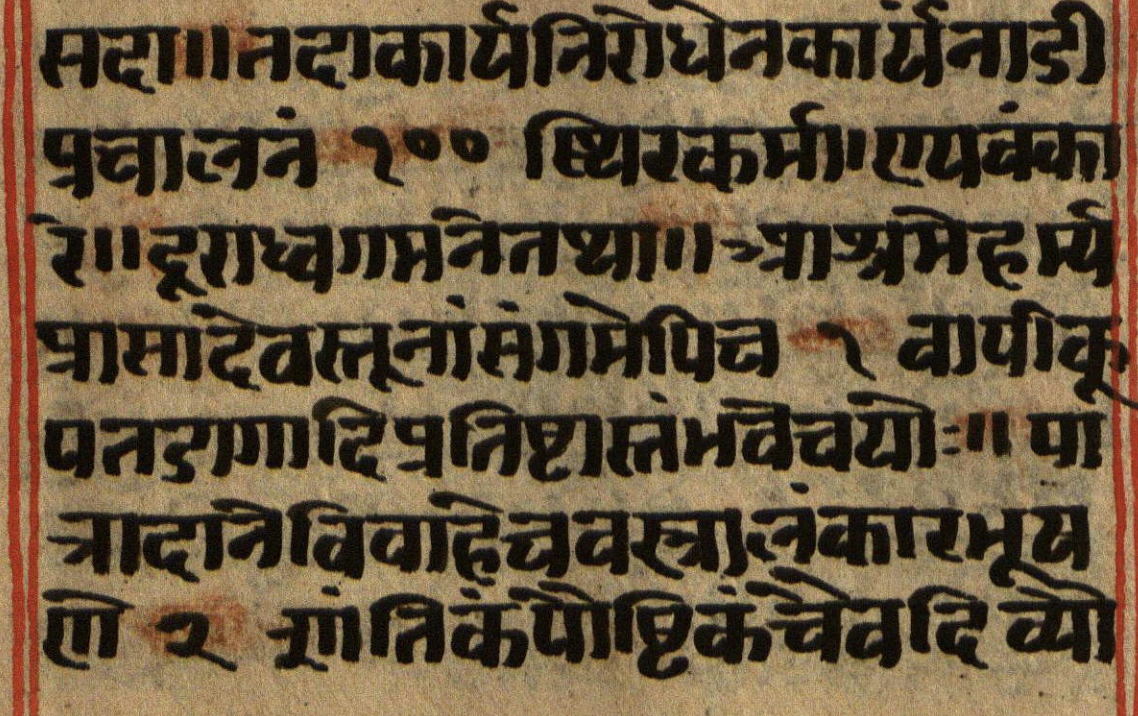 सदा॥तदाकार्यनिरोधेनकार्यंनाडी
प्रचालनं १०० ष्थिरकर्मा॥एयवंका
रे॥दूराध्वगमनेतथा॥आश्रमेहर्म्य
प्रासादेवस्तूनांसंगमेपिच १ वापीकू
पतडागादिप्रतिष्टास्तंभवेचयोः॥पा
त्रादानेविवाहेचवस्त्रालंकारभूष
णे २ शांतिकंपौष्टिकंचैवदिव्यो